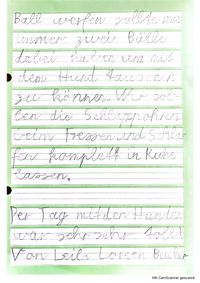 Ball werfen sollte man
immer zwei Bälle
dabei haben um mit
dem Hund tauschen
zu können. Wir sol-
len die Schlappohren
beim Fressen und Schla-
fen komplett in Ruhe
lassen.
Der Tag mit den Hunden
war sehr sehr toll!
Von Leila Loreen Bücher
Mit CamScanner gescannt